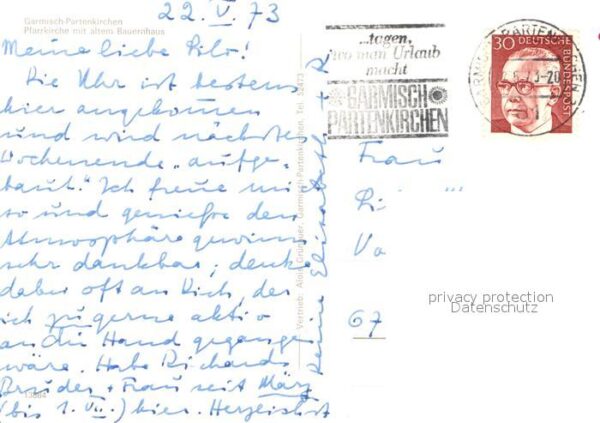 22.V.73
Garmisch-Partenkirchen
Pfarrkirche mit altem Bauernhaus
Meine liebe Rilo!
Die Uhr ist bestens
hier angekommen
und wird nächstes
Wochenende "aufge-
baut". Ich freue mi
so und genieße den
Atmosphäre gewinn
sehr dankbar; denke
dabei oft an Dich, der
ich zu gerne aktiv
an die Hand gegange
wäre. Habe Richards
Bruder + Frau seit März
(bis 1. VII.) hier. Herzlichst
Deine Elisabeth + R
13684
Vertrieb: Alois Grünauer, Garmisch-Partenkirchen, Tel.
...tagen,
wo man Urlaub
macht
GARMISCH
PARTENKIRCHEN
30 DEUTSCHE BUNDESPOST
Frau
Ri
Va
67
privacy protection
Datenschutz